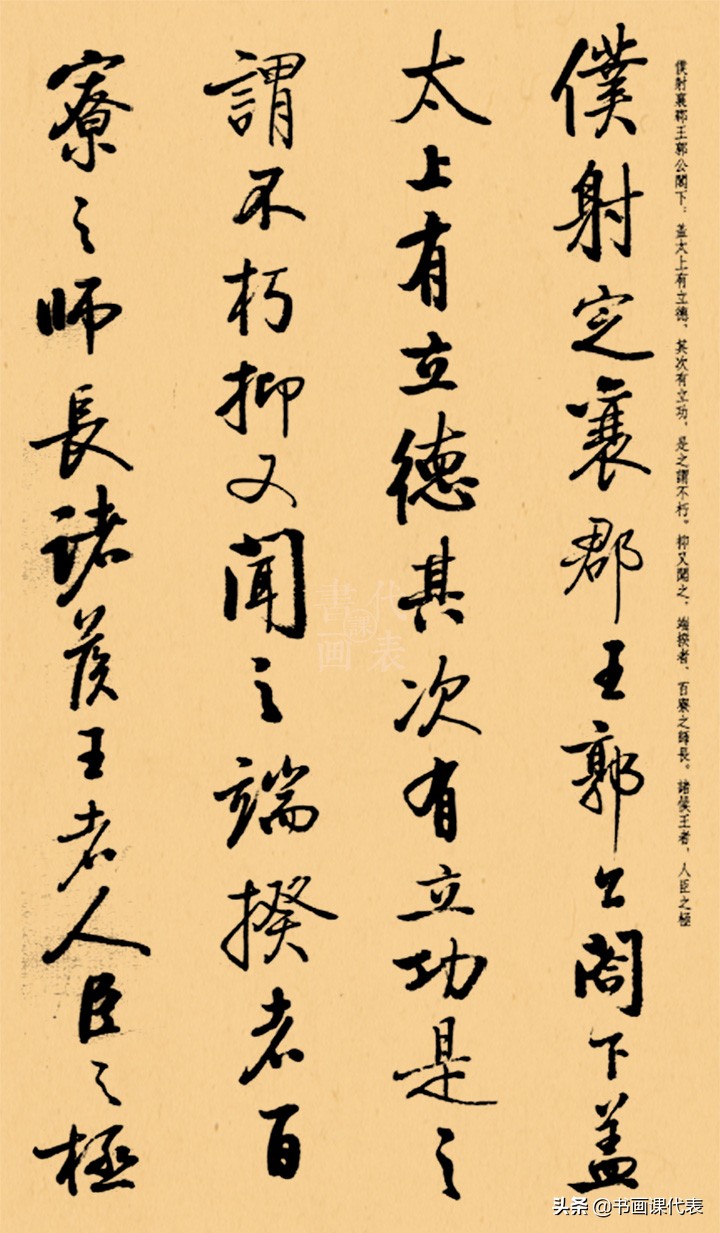 僕射襄郡王郭公閣下：盖太上有立德，其次有立功，是之謂不朽。抑又聞之，端揆者，百寮之師長。諸侯王者，人臣之極
僕射定襄郡王郭公閣下盖
太上有立德其次有立功是之
謂不朽抑又聞之端揆者百
寮之師長諸侯王者人臣之極
書画課代表
头条 @书画课代表